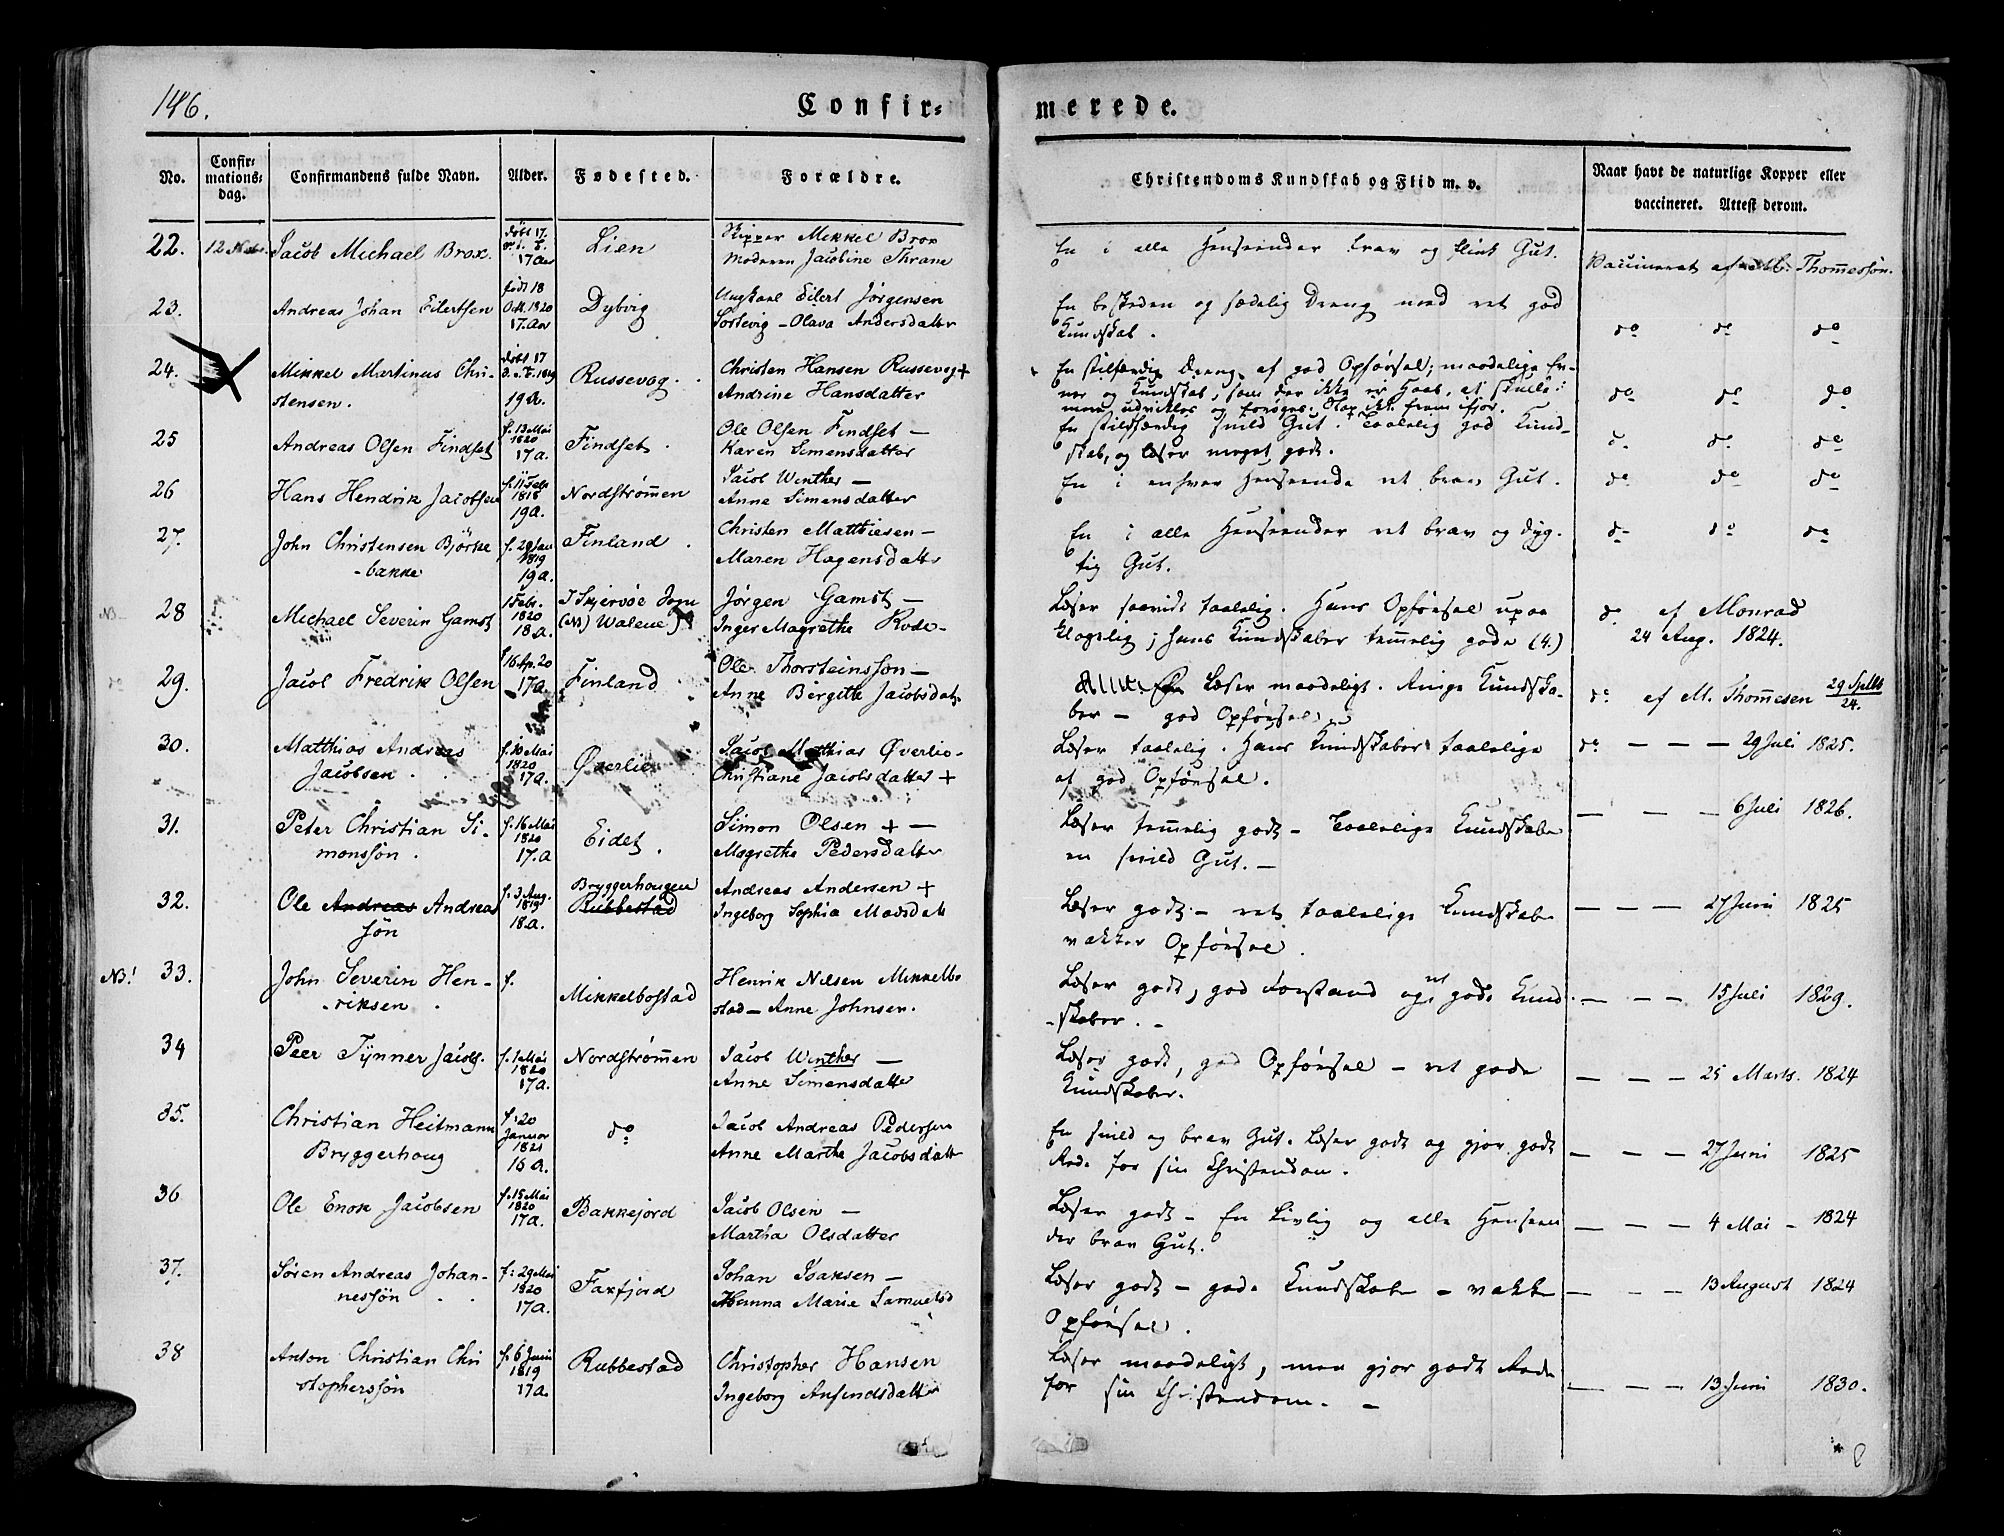 146.
Confir=
merede.
No.
Confir=
mations=
dag.
Confirmandens fulde Navn.
Alder.
Fødested.
Forældre.
Christendoms Kundskab og Flid m. v.
Naar havt de naturlige Kopper eller
vaccineret. Attest derom.
22. Jacob Michael Brox. døbt 17. 17 Aar Lien Skipper Mikkel Brox
Moderen Jacobine Thrane
En i alle Henseender brav og flink Gut. Vaccineret af M. Thomessøn.
23. Andreas Johan Eilertsen født 18 Oct. 1820 17. Aar Dybvig Ungkarl Eilert Jørgensen
Sortevig – Olava Andersdatter
En beskeden og sædelig Dreng med ret god
Kundskab. do do do
24. Mikkel Martinus Chri-
stensen. døbt 17 1819 19 A. Russevog. Christen Hansen Russevog +
Andrine Hansdatter
En stilfærdig Dreng af god Opførsel; maadelige Ev-
ner og Kundskab, som der ikke er Haab, at skulle
do do do
25 Andreas Olsen Findset f. 13 Mai 1820 17 a. Findset. Ole Olsen Findset –
Karen Simensdatter
En stilfærdig snild Gut. Taalelig god Kund-
skab, og læser meget godt. d. do do
26 Hans Hendrik Jacobsen f. 11 Febr 1818 19 a. Nordstrømmen Jacob Winther –
Anne Simensdatter
En i enhver Henseende ret brav Gut. do do do
27. John Christensen Bjørke
-bakke f. 29 Jan 1819 19 a. Finland. Christen Matthiesen –
Maren Hagensdattr
En i alle Henseender ret brav og dyg-
tig Gut. do do do
28 Michael Severin Gamst 1 Febr. 1820 18 a. I Skjervøe Sogn
Jørgen Gamst –
Inger Magrethe Rode-
Læser saavidt taalelig. Hans Opførsel upaa
klagelig; hans Kundskaber temmelig gode (4.) do af Monrad
24 Aug. 1824.
29. Jacob Fredrik Olsen f 16 Ap. 20 17 a. Finland Ole Thorsteinssøn –
Anne Bergitte Jacobsdatr
Læser maadeligt. Ringe Kundska-
ber – god Opførsel do af M. Thommesen 29 Septb 24.
30. Matthias Andreas
Jacobsen. f. 10 Mai 1820 17 a. Øverlie Jacob Mathias Øverlie-
Christiane Jacobsdatter +
Læser taalelig. Hans Kundskaber taalelige
af god Opførsel. do — — — 29 Juli 1825.
31. Peter Christian Si-
monssøn. f. 16 Mai 1820 17. a Eidet. Simon Olsen + —
Magrethe Pedersdatter
Læser temmelig godt – Taalelige Kundskaber
en snild Gut. – — — — 6 Juli 1826.
32. Ole Andreas Andreas
søn f. 3 Aug. 1819 18 a. Bryggerhougen
Rubbestad Andreas Andersen +
Ingeborg Sophia Madsdatr
Læser godt – ret taalelige Kundskaber
vakker Opførsel. — — — 27 Juni 1825
NB! 33. John Severin Hen-
-riksen. f. Mikkelbostad Henrik Nilsen Mikkelbo
stad – Anne Johnsen.
Læser godt, god Forstand og ret gode Kund
-skaber. – — — — 15 Juli 1829.
34 Peer Tynner Jacobs. f. 1 Mai 1820 17 a. Nordstrømmen Jacob Winther –
Anne Simensdatter
Læser godt, god Opførsel – ret gode
Kundskaber. — — — 25 Marts. 1824
35. Christian Heitmann
Bryggerhoug f: 20 Januar 1821 16 a. do Jacob Andreas Pedersen
Anne Marthe Jacobsdatt
En snild og brav Gut. Læser godt og gjør godt
Rede for sin Christendom. — — — 27 Juni 1825
36 Ole Enok Jacobsen f. 15 Mai 1820 17 a. Bakkejord Jacob Olsen –
Martha Olsdatter
Læser godt – En livlig og alle Henseen
der brav Gut. — — — 4 Mai – 1824
37. Søren Andreas Johan-
nessøn f: 29 Mai 1820 17 a. Faxfjord Johan Isaksen –
Hanna Marie Samuelsd
Læser godt – gode Kundskaber – vakker
Opførsel. — — — 13 August 1824
38 Anton Christian Chri
stopherssøn f. 6 Juni 1819 17 a. Rubbestad Christopher Hansen
Ingeborg Ansindsdatter
Læser maadeligt, men gjør godt Rede
for sin Christendom. – — — — 13 Juni 1830.